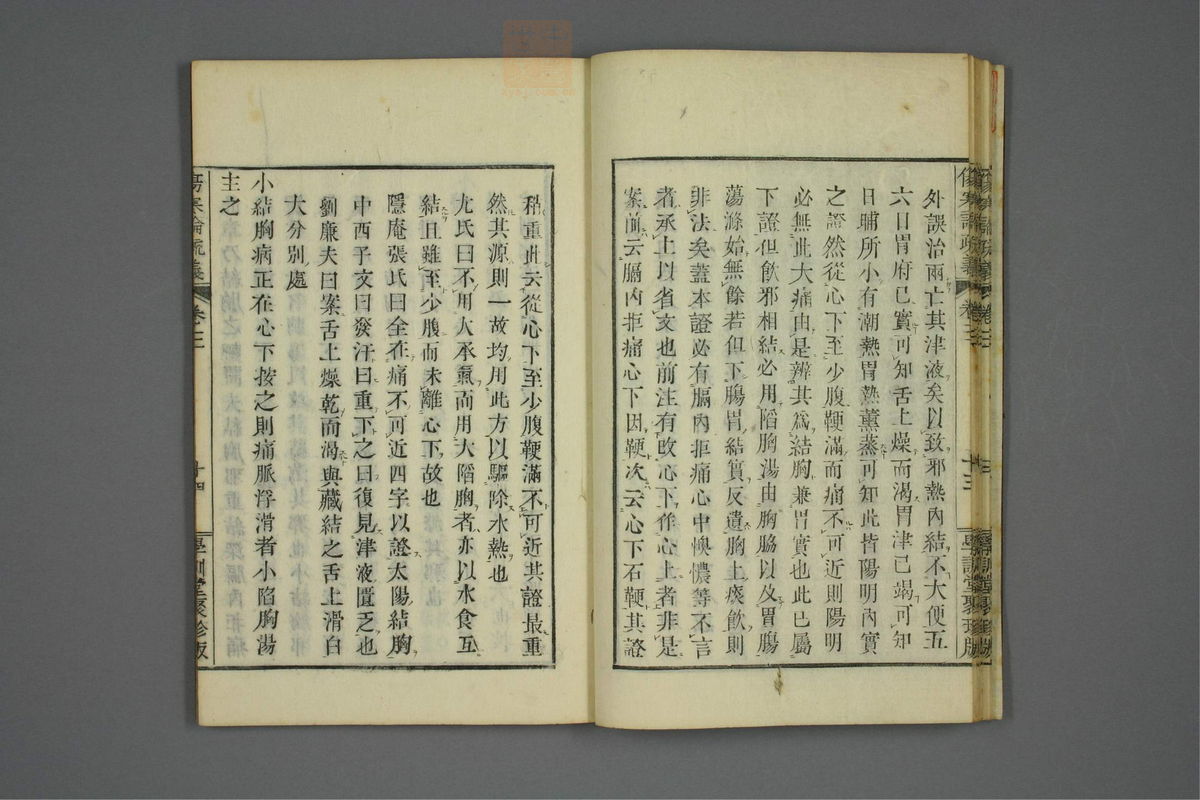 外誤治兩亡其津液矣以致邪熱內結不大便五
六日胃府已實可知舌上燥而渴胃津已竭可知
日晡所小有潮熱胃熱薰蒸可知此皆陽明內實
之證然從心下至少腹鞕滿而痛不可近則陽明
必無此大痛由是辨其爲結胸兼胃實也此已屬
下證但飮邪相結必用陷胸湯由胸脇以及胃腸
蕩滌始無餘若但下腸胃結實反遺胸上痰飮則
非法矣蓋本證必有膈內拒痛心中懊憹等不言
者承上以省文也前注有改心下作心上者非是
案前云膈內拒痛心下因鞕次云心下石鞕其證
傷寒論疏義 卷三 十三 學訓堂聚珍版
稍重此云從心下至少腹鞕滿不可近其證最重
然其源則一故均用此方以驅除水熱也
尤氏曰不用大承氣而用大陷胸者亦以水食互
結且雖至少腹而未離心下故也
隱庵張氏曰全在痛不可近四字以證太陽結胸
中西子文曰發汗曰重下之曰復見津液匱乏也
劉廉夫曰案舌上燥乾而渴與藏結之舌上滑白
大分別處
小結胸病正在心下按之則痛脈浮滑者小陷胸湯
主之
傷寒論疏義 卷三 十四 學訓堂聚珍版